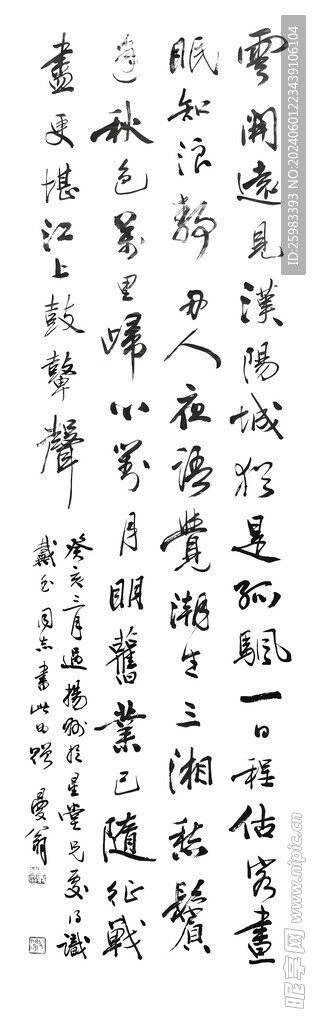 雲開遠見漢陽城猶是孤颿一日程估客晝
眠知浪靜舟人夜語覺潮生三湘愁鬢
逢秋色萬里歸心對月明舊業已隨征戰
盡更堪江上鼓鼙聲
癸亥三月過揚州於星堂兄處得識
戴玉同志書此留贈 曼翁
昵享网 www.nipic.cn
ID:25983393 NO:20240601223439106104